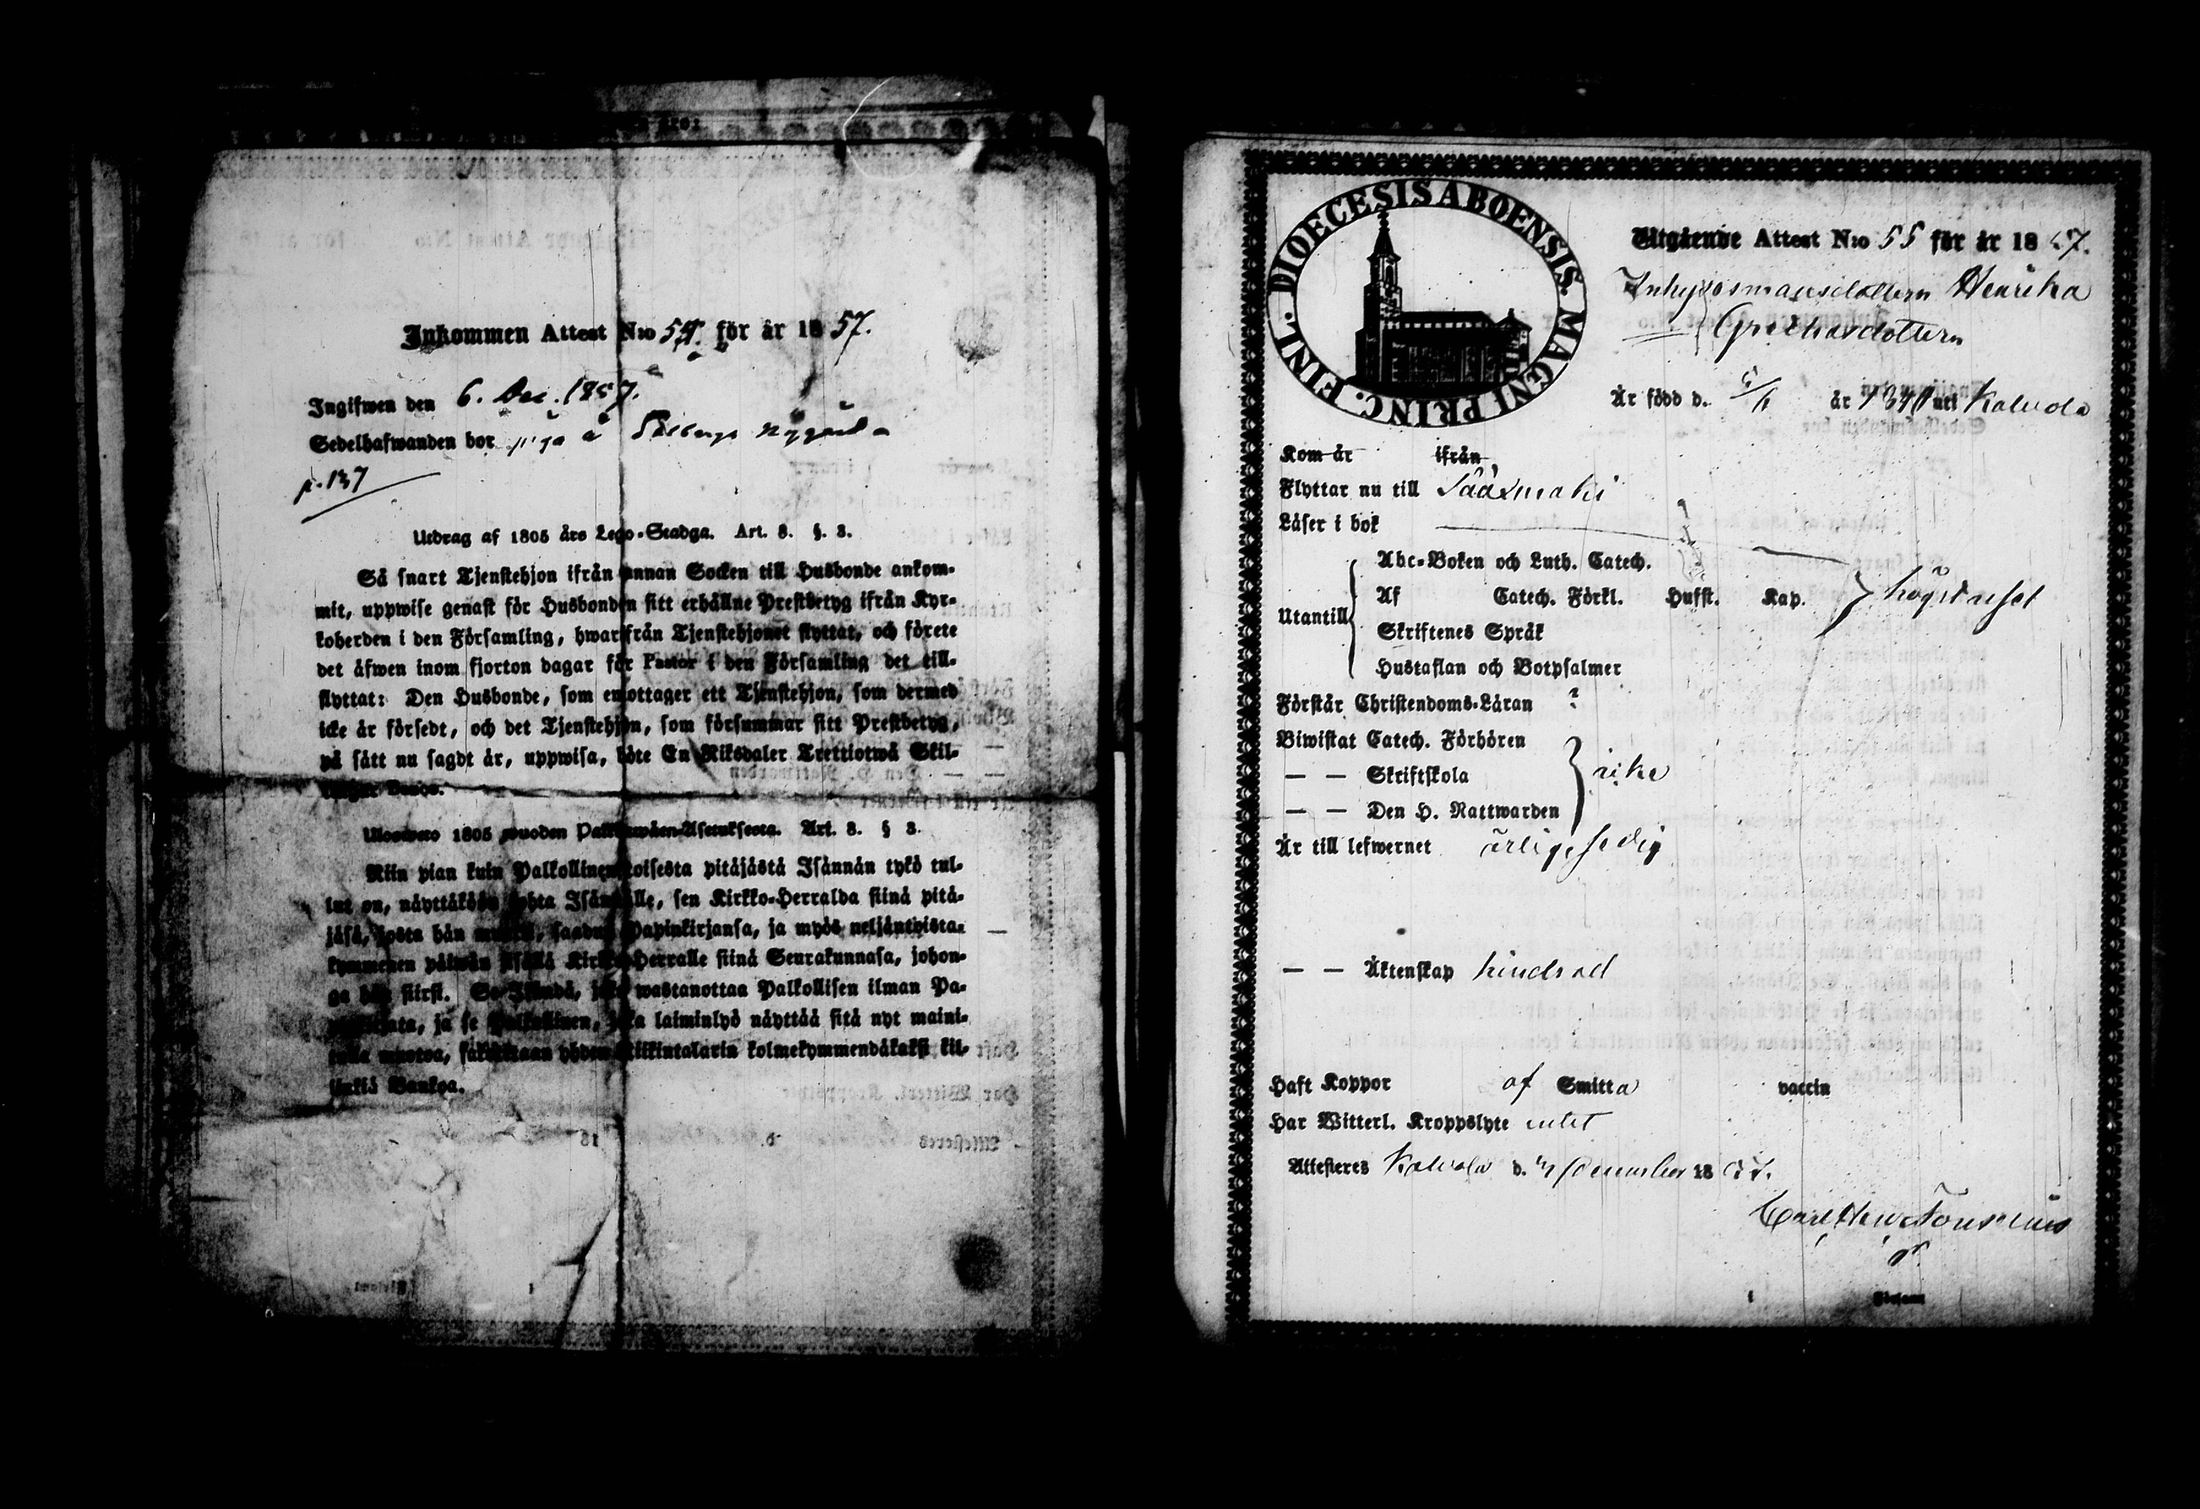 Inkommen Attest N:o 54. för år 1857.
Ingifwen den 6. Dec. 1857.
Sedelhafwanden bor piga å Nygård
p. 137
Utdrag af 1805 års Lego-Stadga. Art. 8. §. 3.
Så snart Tjenstehjon ifrån annan Socken till Husbonde ankom-
mit, uppwise genast för Husbonden sitt erhållne Prestbetyg ifrån Kyr-
koherden i den Församling, hwarifrån Tjenstehjonet flyttat, och förete
det äfwen inom fjorton dagar för Pastor i den Församling det till-
flyttat: Den Husbonde, som emottager ett Tjenstehjon, som dermed
icke är försedt, och det Tjenstehjon, som försummar sitt Prestbetyg,
på sätt nu sagdt är, uppwisa, böte En Riksdaler Trettiotwå Skil-
lingar Banco.
Ulosweto 1805 wuoden Palkkawäen-Asetuksesta. Art. 8. § 3.
Niin pian kuin Palkollinen toisesta pitäjästä Isännän tykö tul-
lut on, näyttäköön kohta Isännälle, sen Kirkko-Herralda siinä pitä-
jäsä, josta hän muutti, saadun Papinkirjansa, ja myös neljäntoista-
kymmenen päiwän sisällä Kirkko-Herralle siinä Seurakunnasa, johon-
ga hän siirsi. Se Isändä, joka wastanottaa Palkollisen ilman Pa-
pinkirjata, ja se Palkollinen, joka laiminlyö näyttää sitä nyt maini-
tulla muotoa, sakoitetaan yhden Riikintalarin kolmekymmendäkaksi kil-
linkiä Bankoa.
DIOECESIS ABOENSIS. MAGNI PRINC. FINL.
Utgående Attest N:o 55 för år 1857.
Inhysesmansdottern Henrika
Är född d. år uti Kalvola
Kom år ifrån
Flyttar nu till Sääxmäki
Läser i bok
Abc-Boken och Luth. Catech.
Utantill Af Catech. Förkl. Hufst. Kap.
Skriftenes Språk
Hustaflan och Botpsalmer
Förstår Christendoms-Läran ?
Biwistat Catech. Förhören
— — Skriftskola
— — Den H. Nattwarden
Är till lefwernet ärlig, sedig
— — Äktenskap hindrad
Haft Koppor af Smitta vaccin
Har Witterl. Kroppslyte intet
Attesteres Kalvola d. 4 December 1857.